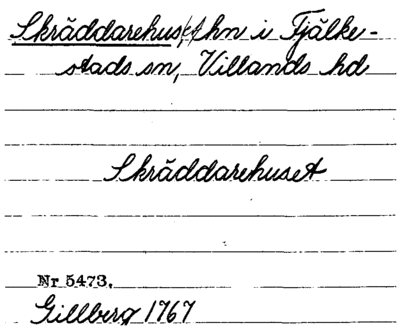 Skräddarehuset hn i Fjälke-
stads sn, Villands hd
Skräddarehuset
Nr 5473.
Gillberg 1767